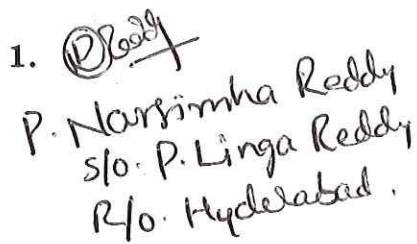 1. P Reddy
P. Narsimha Reddy
S/o. P. Linga Reddy
R/o. Hyderabad.